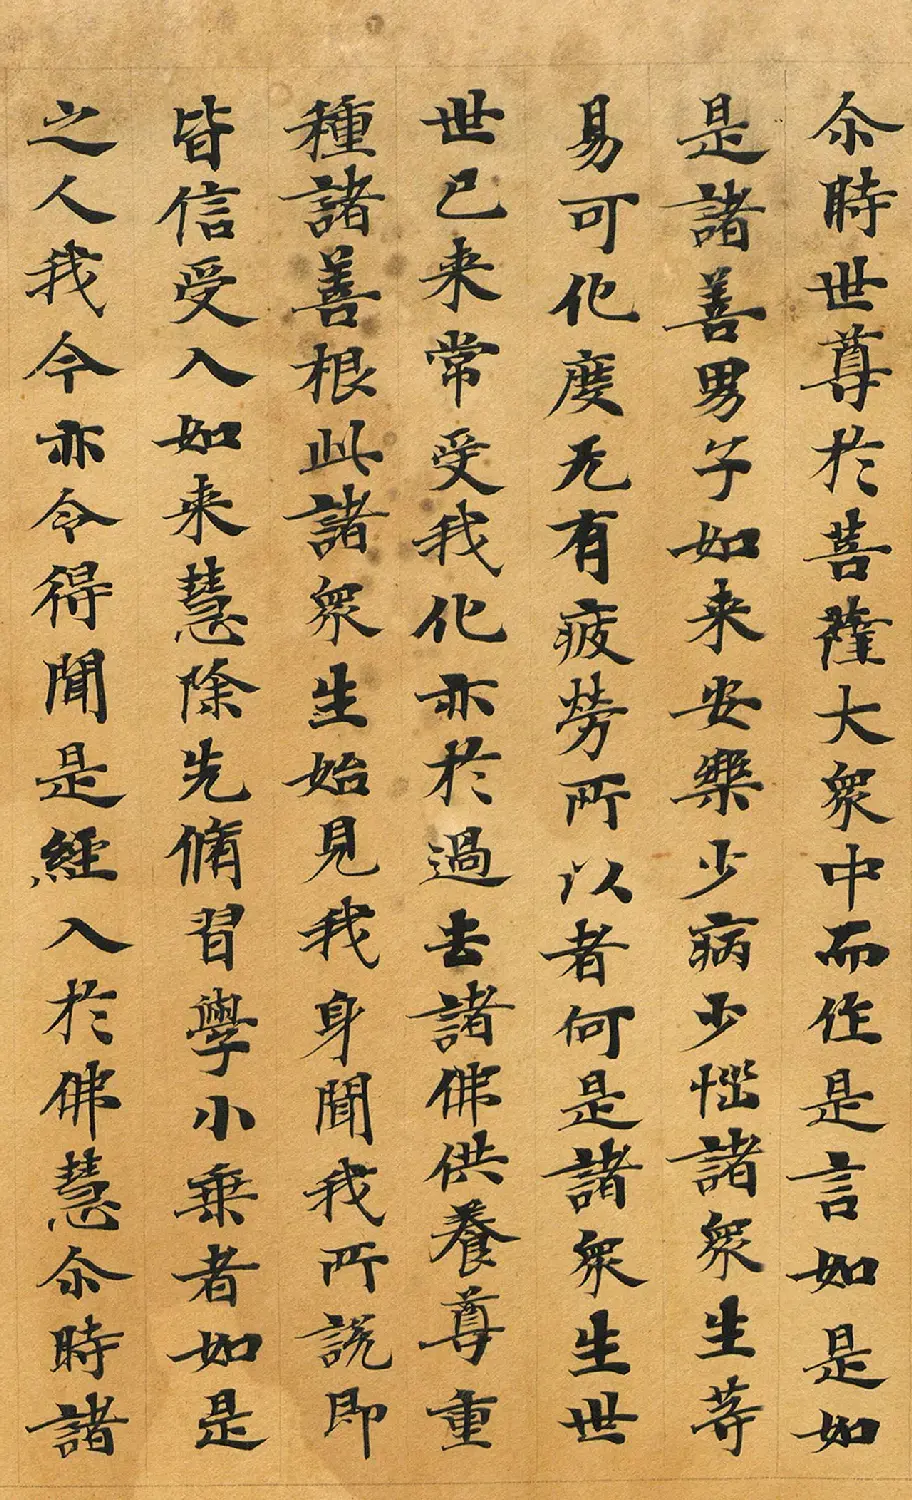 尒時世尊於菩薩大衆中而作是言如是如
是諸善男子如来安樂少病少惱諸衆生等
易可化度无有疲勞所以者何是諸衆生世
世已来常受我化亦於過去諸佛供養尊重
種諸善根此諸衆生始見我身聞我所說即
皆信受入如来慧除先脩習學小乗者如是
之人我今亦令得聞是經入於佛慧尒時諸